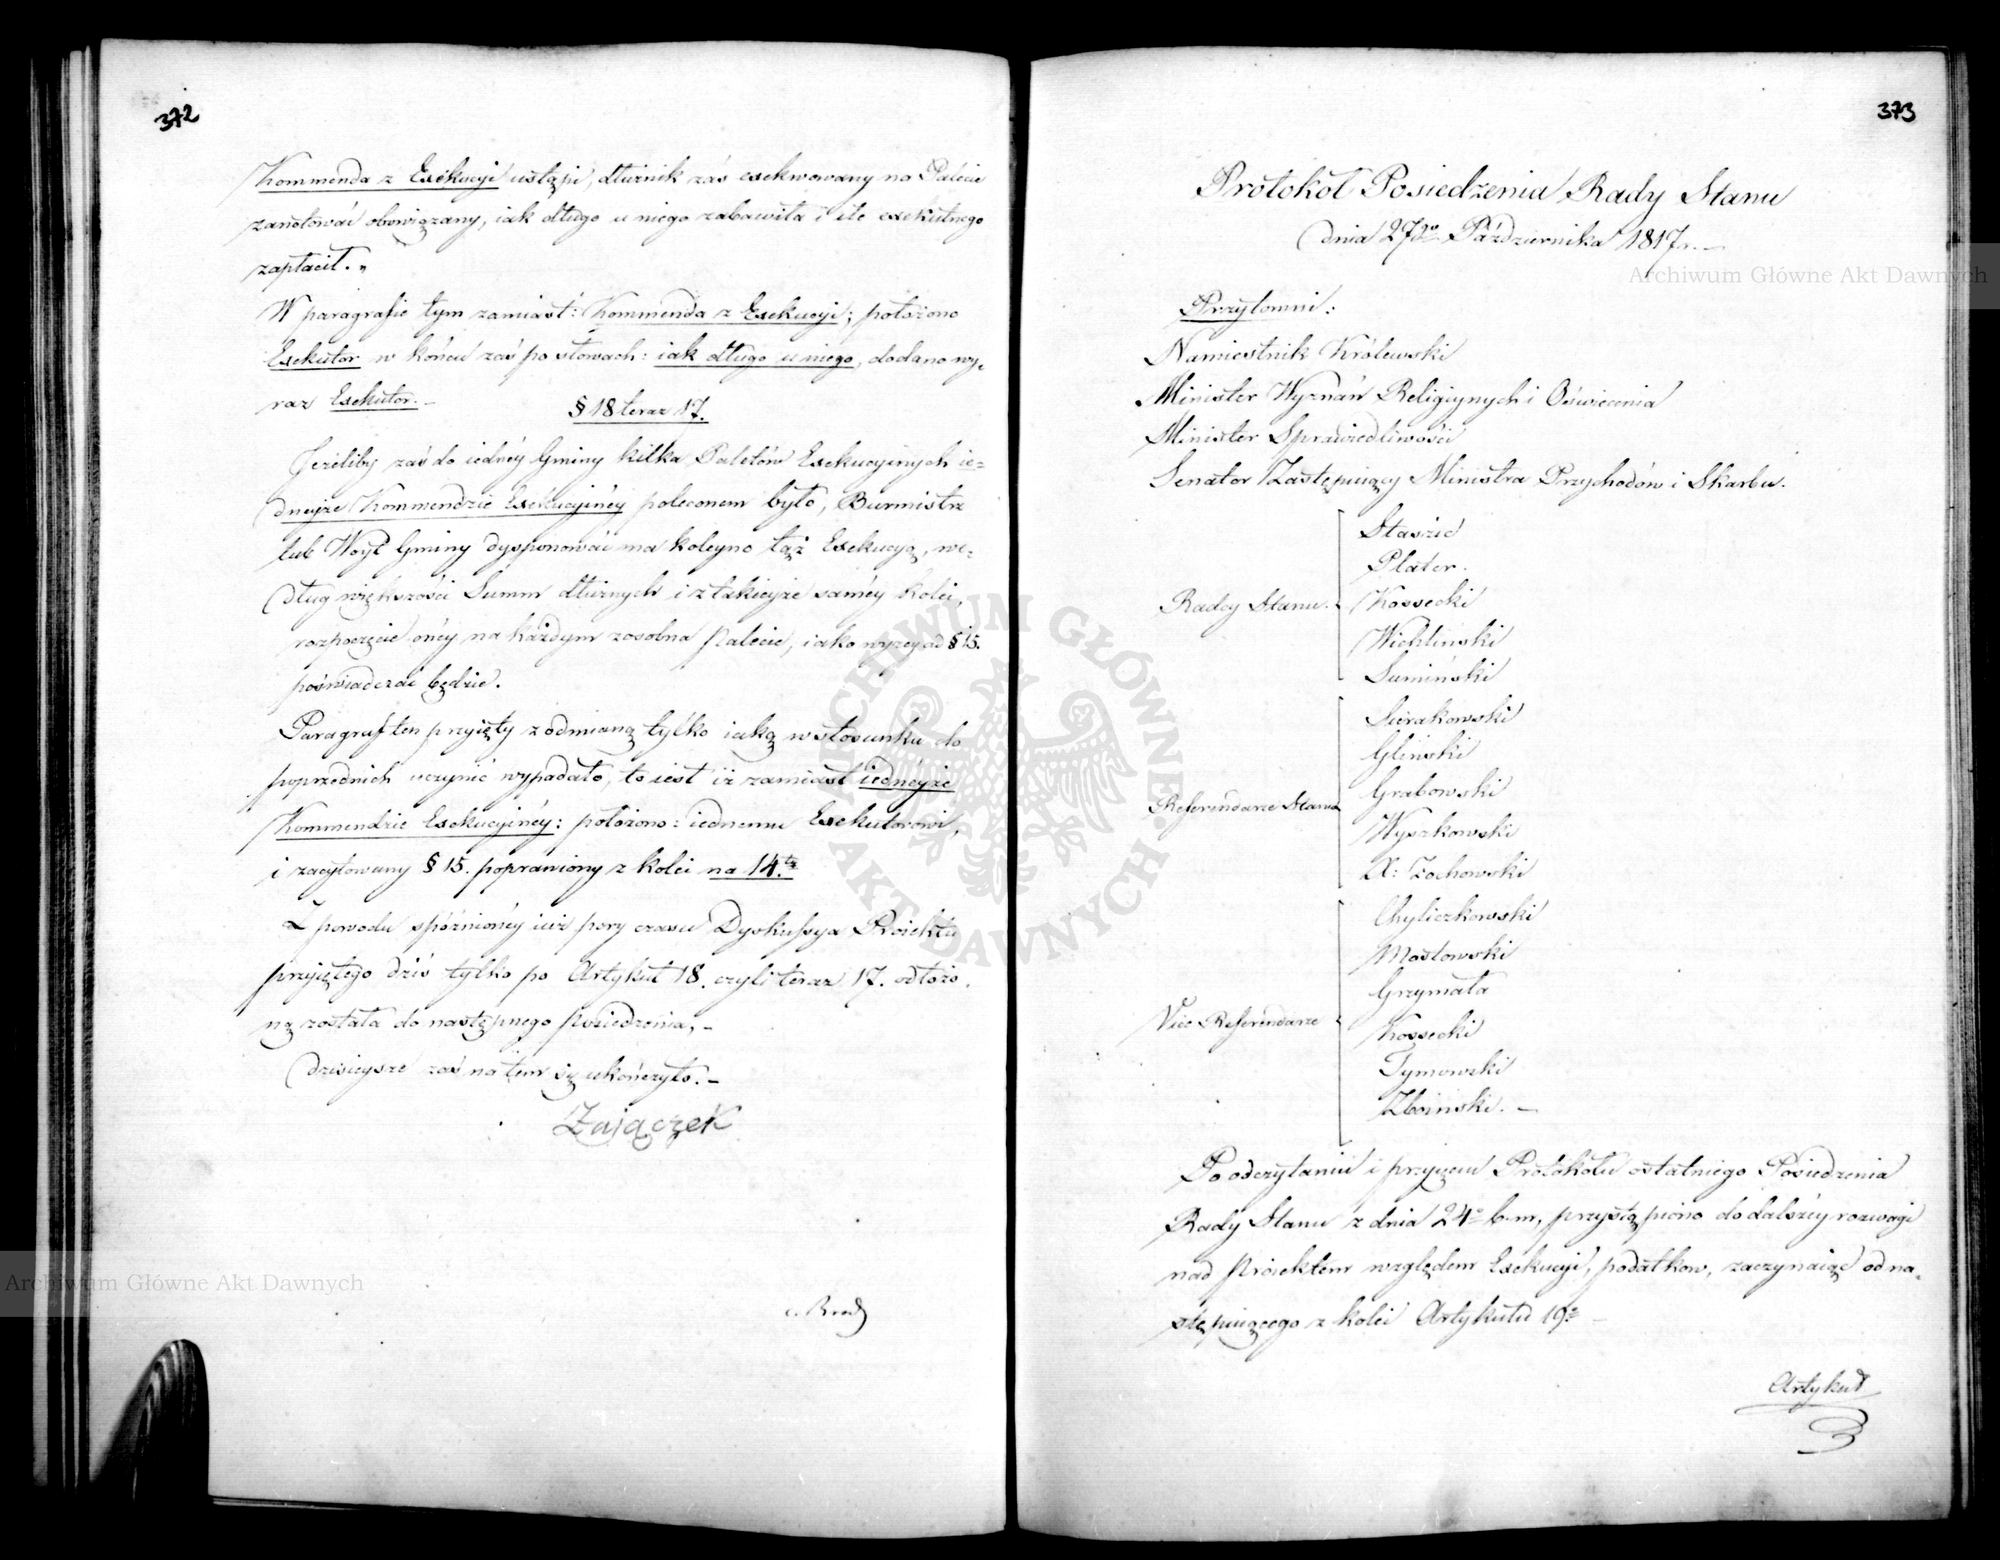 372
Kommenda z Exekucyi ustąpi, dłużnik zaś exekwowany na Palecie
zanotować obowiązany, iak długo u niego zabawiła i ile exekutnego
zapłacił."
W paragrafie tym zamiast: Kommenda z Exekucyi; położono
Exekutor w końcu zaś po słowach: iak długo u niego, dodano wy-
raz Exekutor. –
§ 18 teraz 17.
Jeżeliby zaś do iednéy Gminy kilka Paletów Exekucyinych ie-
dneyże Kommendzie Exekucyinéy poleconem było, Burmistrz
lub Woyt Gminy dysponować ma koleyno tąż Exekucyą, we-
dług większości Summ dłużnych i z takieyże saméy kolei,
rozpoczęcie onéy na każdym zosobna Palecie, iako wyzey ad § 15.
poświadczać będzie.
Paragraf ten przyięty z odmianą tylko iaką w stosunku do
poprzednich uczynić wypadało, to iest iż zamiast iednéyże
Kommendzie Exekucyinéy: położono: iednemu Exekutorowi,
i zacytowany § 15. poprawiony z kolei na 14.ty
Z powodu spóźnionéy iuż pory czasu Dyskussya Proiektu
przyiętego dziś tylko po Artykuł 18. czyli teraz 17. odłożo-
ną została do następnego Posiedzenia, –
dzisieysze zaś na tém się ukończyło. –
Zajączek
373
Protokół Posiedzenia Rady Stanu
dnia 27go Października 1817r. –
Przytomni:
Namiestnik Królewski
Minister Wyznań Religiynych i Oświecenia
Minister Sprawiedliwości
Senator Zastępuiący Ministra Przychodów i Skarbu.
Radcy Stanu.
Staszic
Plater.
Kossecki
Wichliński
Sumiński
Referendarze Stanu
Sierakowski
Gliński
Grabowski
Wyszkowski
X: Żochowski
Vice Referendarze
Chyliczkowski
Mostowski
Grzymała
Kossecki
Tymowski
Zboiński. –
Po odczytaniu i przyięciu Protokółu ostatniego Posiedzenia
Rady Stanu z dnia 24o b. m, przystąpiono do dalszéy rozwagi
nad Proiektem względem Exekucyi, podatków, zaczynaiąc od na-
stępuiącego z kolei Artykułu 19o –
Artykuł
Archiwum Główne Akt Dawnych
Archiwum Główne Akt Dawnych
ARCHIWUM GŁÓWNE AKT DAWNYCH